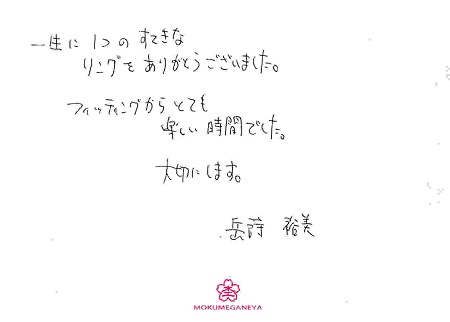 一生に1つのすてきな
リングをありがとうございました。
フィッティングからとても
楽しい時間でした。
大切にします。
裕美
MOKUMEGANEYA